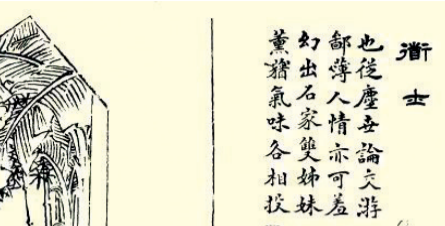 道士
也從塵世論交游
鄙薄人情亦可羞
幻出石家雙姊妹
薰蕕氣味各相投